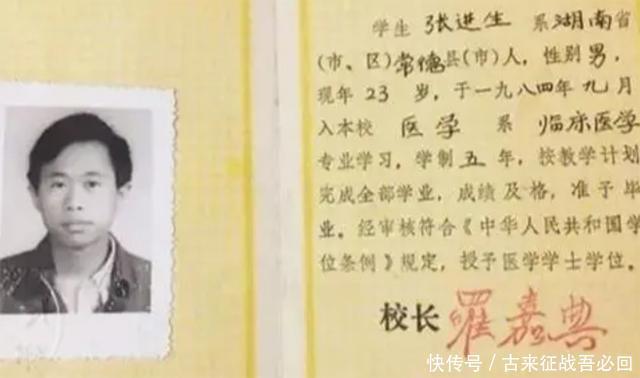 学生 张进生 系湖南省
(市、区)常德县(市)人，性别男，
现年 23 岁，于一九八四年九月
入本校 医学 系 临床医学
专业学习，学制五年，按教学计划
完成全部学业，成绩及格，准予毕
业。经审核符合《中华人民共和国学
位条例》规定，授予医学学士学位。
校长 罗嘉典
快传号／古来征战吾必回